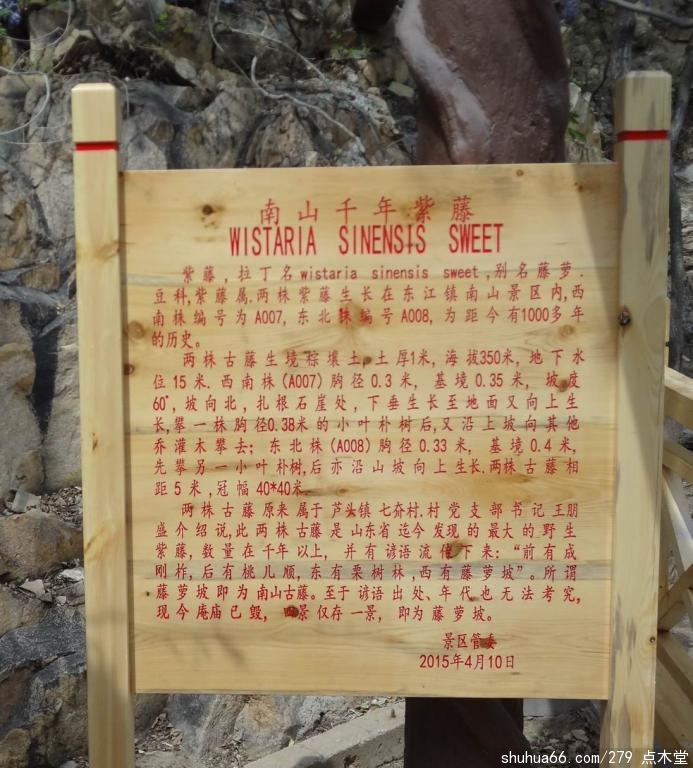 南山千年紫藤
WISTARIA SINENSIS SWEET
紫藤,拉丁名wistaria sinensis sweet,别名藤萝.
豆科,紫藤属.两株紫藤生长在东江镇南山景区内,西
南株编号为A007,东北株编号A008,为距今有1000多年
的历史。
两株古藤生境棕壤土,土厚1米,海拔350米,地下水
位15米.西南株(A007)胸径0.3米,基境0.35米,坡度
60°,坡向北,扎根石崖处,下垂生长至地面又向上生
长,攀一株胸径0.38米的小叶朴树后,又沿上坡向其他
乔灌木攀去;东北株(A008)胸径0.33米,基境0.4米,
先攀另一小叶朴树,后亦沿山坡向上生长.两株古藤相
距5米,冠幅40*40米.
两株古藤原来属于芦头镇七夼村.村党支部书记王朋
盛介绍说,此两株古藤是山东省迄今发现的最大的野生
紫藤,数量在千年以上,并有谚语流传下来:“前有成
刚柞,后有桃儿顺,东有栗树林,西有藤萝坡”。所谓
藤萝坡即为南山古藤。至于谚语出处、年代也无法考究,
现今庵庙已毁,四景仅存一景,即为藤萝坡。
景区管委
2015年4月10日
shuhua66.com/279 点木堂